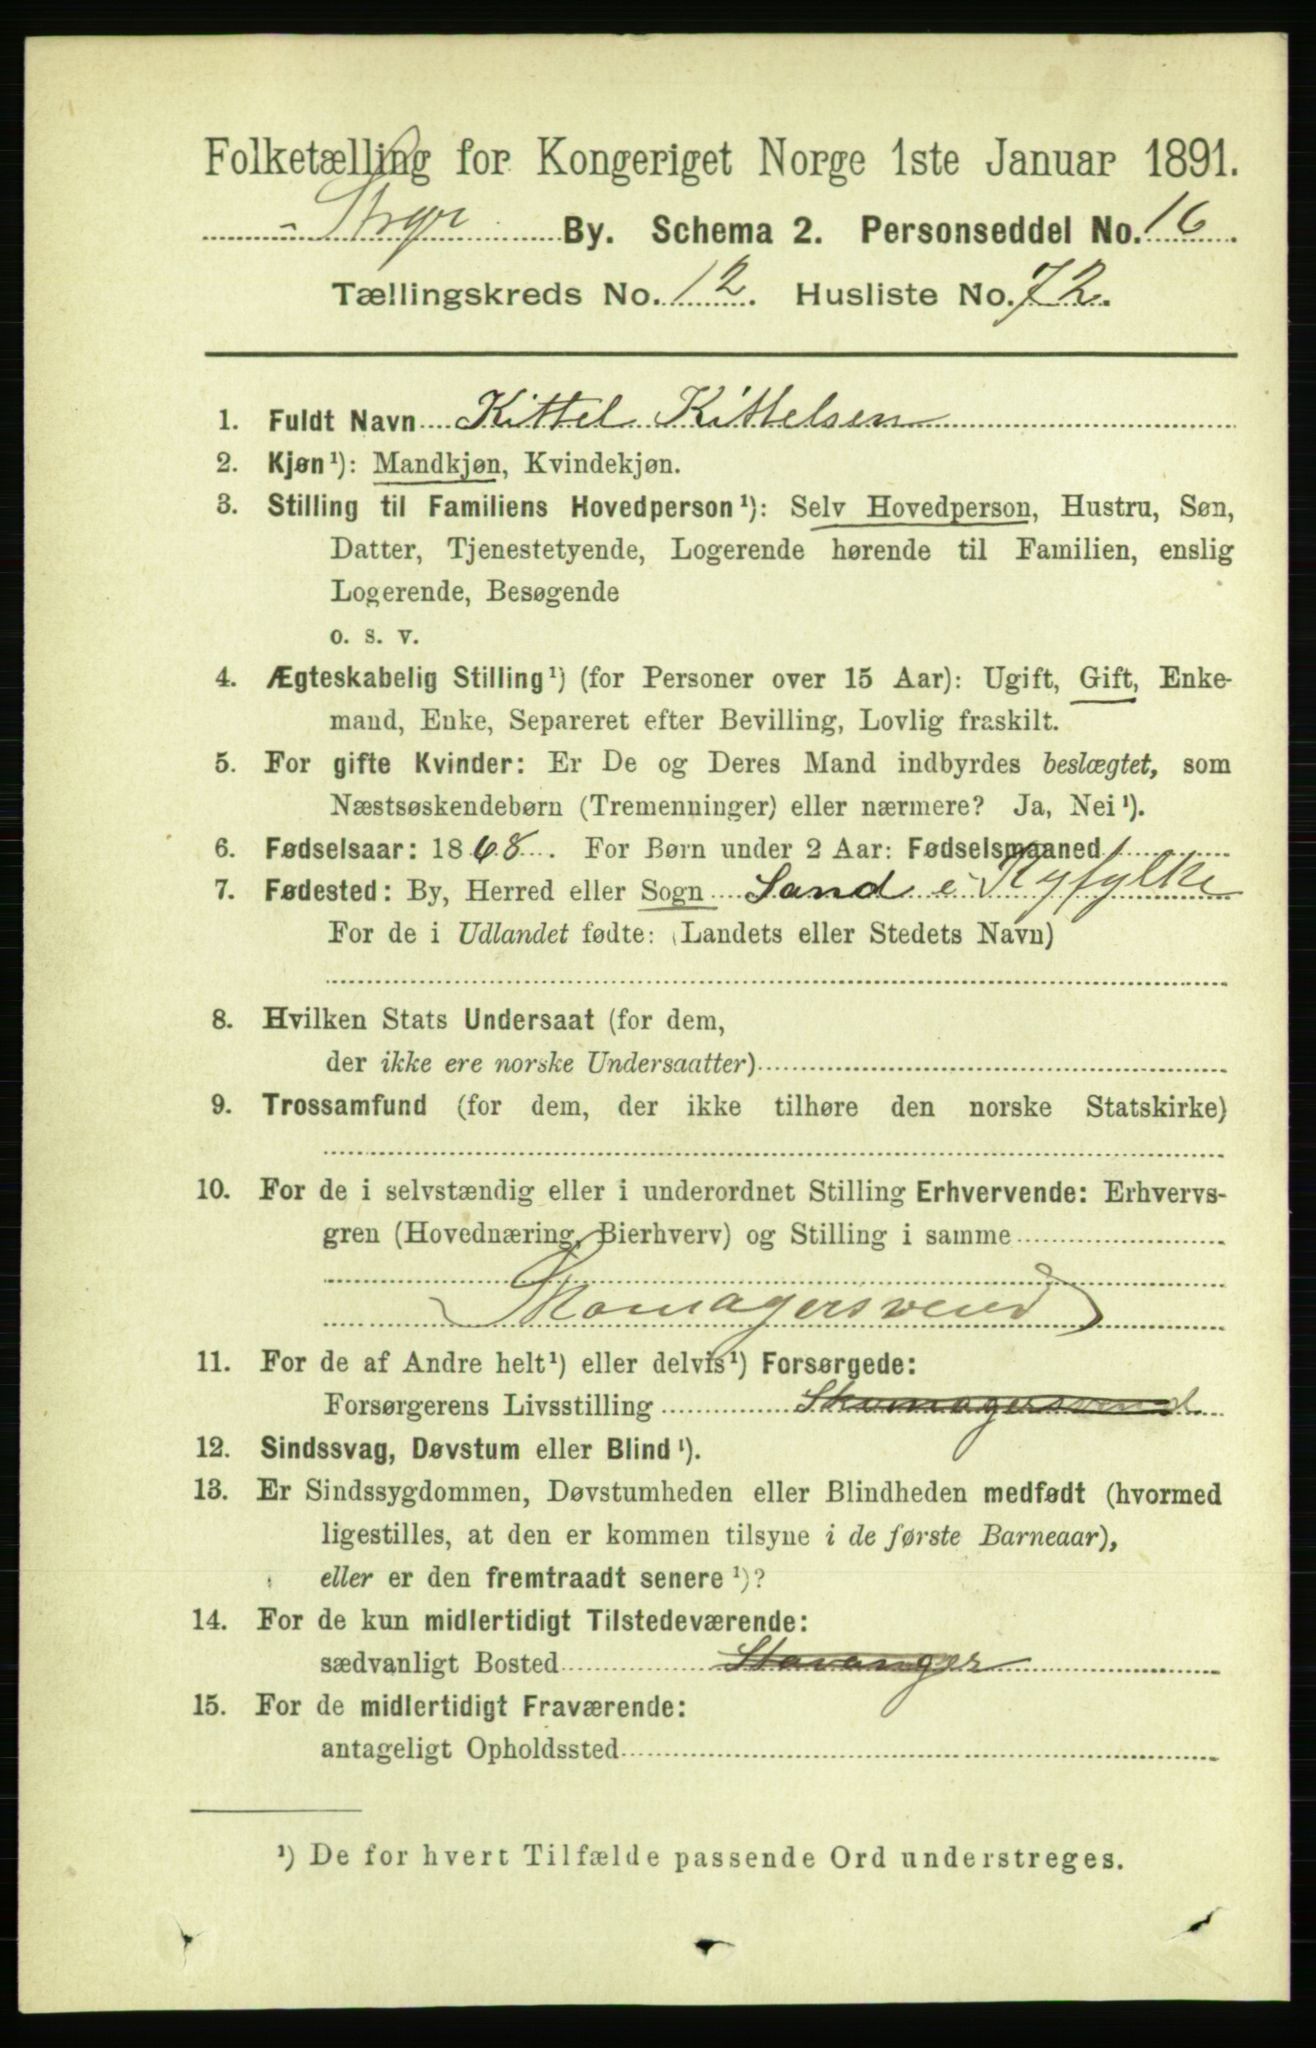 Folketælling for Kongeriget Norge 1ste Januar 1891.
By. Schema 2. Personseddel No. 16
Tællingskreds No. 12. Husliste No. 72.
1. Fuldt Navn Kittel Kittelsen
2. Kjøn¹): Mandkjøn, Kvindekjøn.
3. Stilling til Familiens Hovedperson¹): Selv Hovedperson, Hustru, Søn,
Datter, Tjenestetyende, Logerende hørende til Familien, enslig
Logerende, Besøgende
o. s. v.
4. Ægteskabelig Stilling¹) (for Personer over 15 Aar): Ugift, Gift, Enke-
mand, Enke, Separeret efter Bevilling, Lovlig fraskilt.
5. For gifte Kvinder: Er De og Deres Mand indbyrdes beslægtet, som
Næstsøskendebørn (Tremenninger) eller nærmere? Ja, Nei¹).
6. Fødselsaar: 1868. For Børn under 2 Aar: Fødselsmaaned
7. Fødested: By, Herred eller Sogn Sand i Ryfylke
For de i Udlandet fødte: (Landets eller Stedets Navn)
8. Hvilken Stats Undersaat (for dem,
der ikke ere norske Undersaatter)
9. Trossamfund (for dem, der ikke tilhøre den norske Statskirke)
10. For de i selvstændig eller i underordnet Stilling Erhvervende: Erhvervs-
gren (Hovednæring, Bierhverv) og Stilling i samme
Skomagersvend
11. For de af Andre helt¹) eller delvis¹) Forsørgede:
Forsørgerens Livsstilling Skomagersvend
12. Sindssvag, Døvstum eller Blind¹).
13. Er Sindssygdommen, Døvstumheden eller Blindheden medfødt (hvormed
ligestilles, at den er kommen tilsyne i de første Barneaar),
eller er den fremtraadt senere¹)?
14. For de kun midlertidigt Tilstedeværende:
sædvanligt Bosted Stavanger
15. For de midlertidigt Fraværende:
antageligt Opholdssted
¹) De for hvert Tilfælde passende Ord understreges.